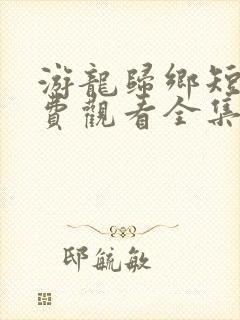 游龍歸鄉短
費觀看全集
邸毓敏